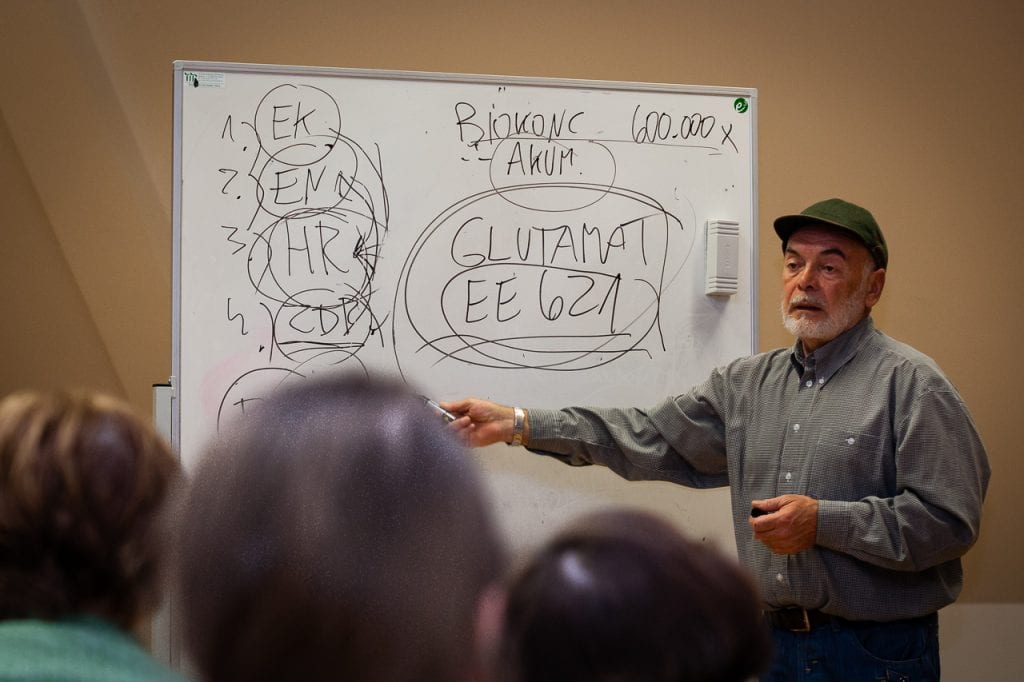 1. EK
2. EN
3. HR
4. CDP
BiOKONC 600.000 x
AKUM.
GLUTAMAT
EE 621